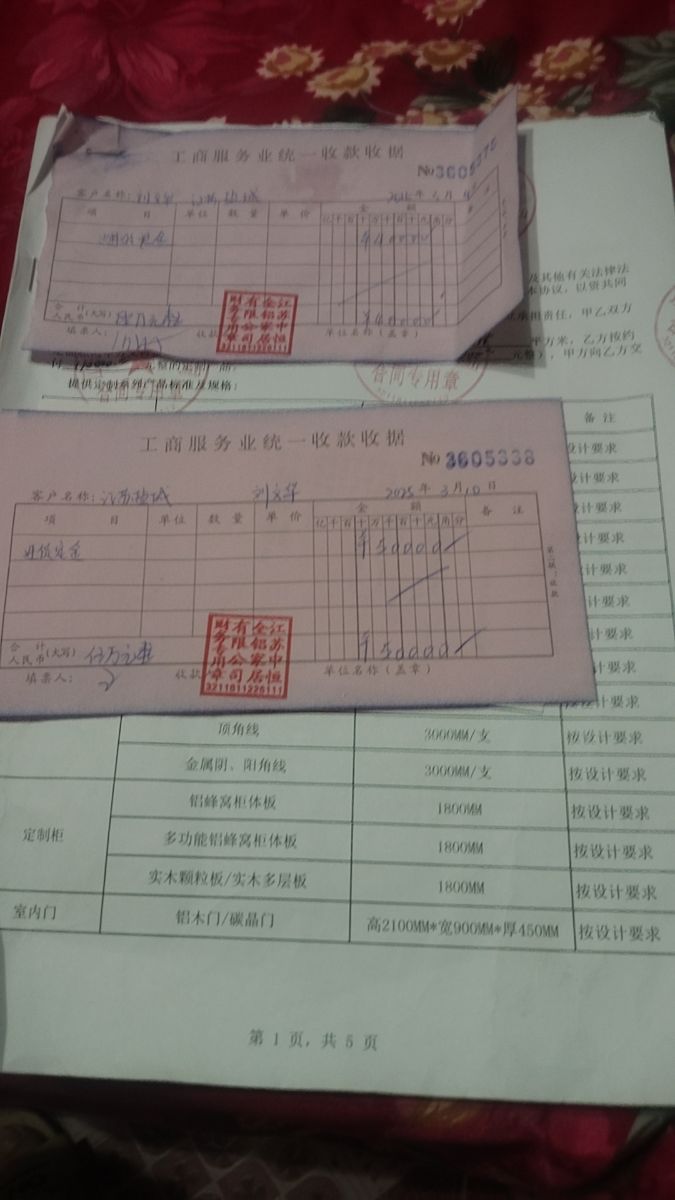 工商服务业统一收款收据
No 3605375
客户名称: 江苏盐城
项目 单位 数量 单价 金额
亿 千 百 十 万 千 百 十 元 角 分
¥40000
合计
人民币(大写) ¥40000
填票人: 收款 单位名称(盖章)
江苏中恒全铝家居有限公司财务专用章
3211811226111
及其他有关法律法
本协议，以资共同
承担责任，甲乙双方
平方米，乙方按约
元整），甲方向乙方交
合同专用章
提供定制系列产品标准及规格:
备注
工商服务业统一收款收据
No 3605338
客户名称: 江苏盐城 刘文华 2025年3月10日
项目 单位 数量 单价 金额 备注
亿 千 百 十 万 千 百 十 元 角 分
¥50000
合计
人民币(大写) 伍万元整 ¥50000
填票人: 收款 单位名称(盖章)
江苏中恒全铝家居有限公司财务专用章
3211811226111
设计要求
设计要求
设计要求
设计要求
设计要求
计要求
设计要求
设计要求
设计要求
顶角线 3000MM/支 按设计要求
金属阴、阳角线 3000MM/支 按设计要求
定制柜 铝蜂窝柜体板 1800MM 按设计要求
多功能铝蜂窝柜体板 1800MM 按设计要求
实木颗粒板/实木多层板 1800MM 按设计要求
室内门 铝木门/碳晶门 高2100MM*宽900MM*厚450MM 按设计要求
第 1 页，共 5 页